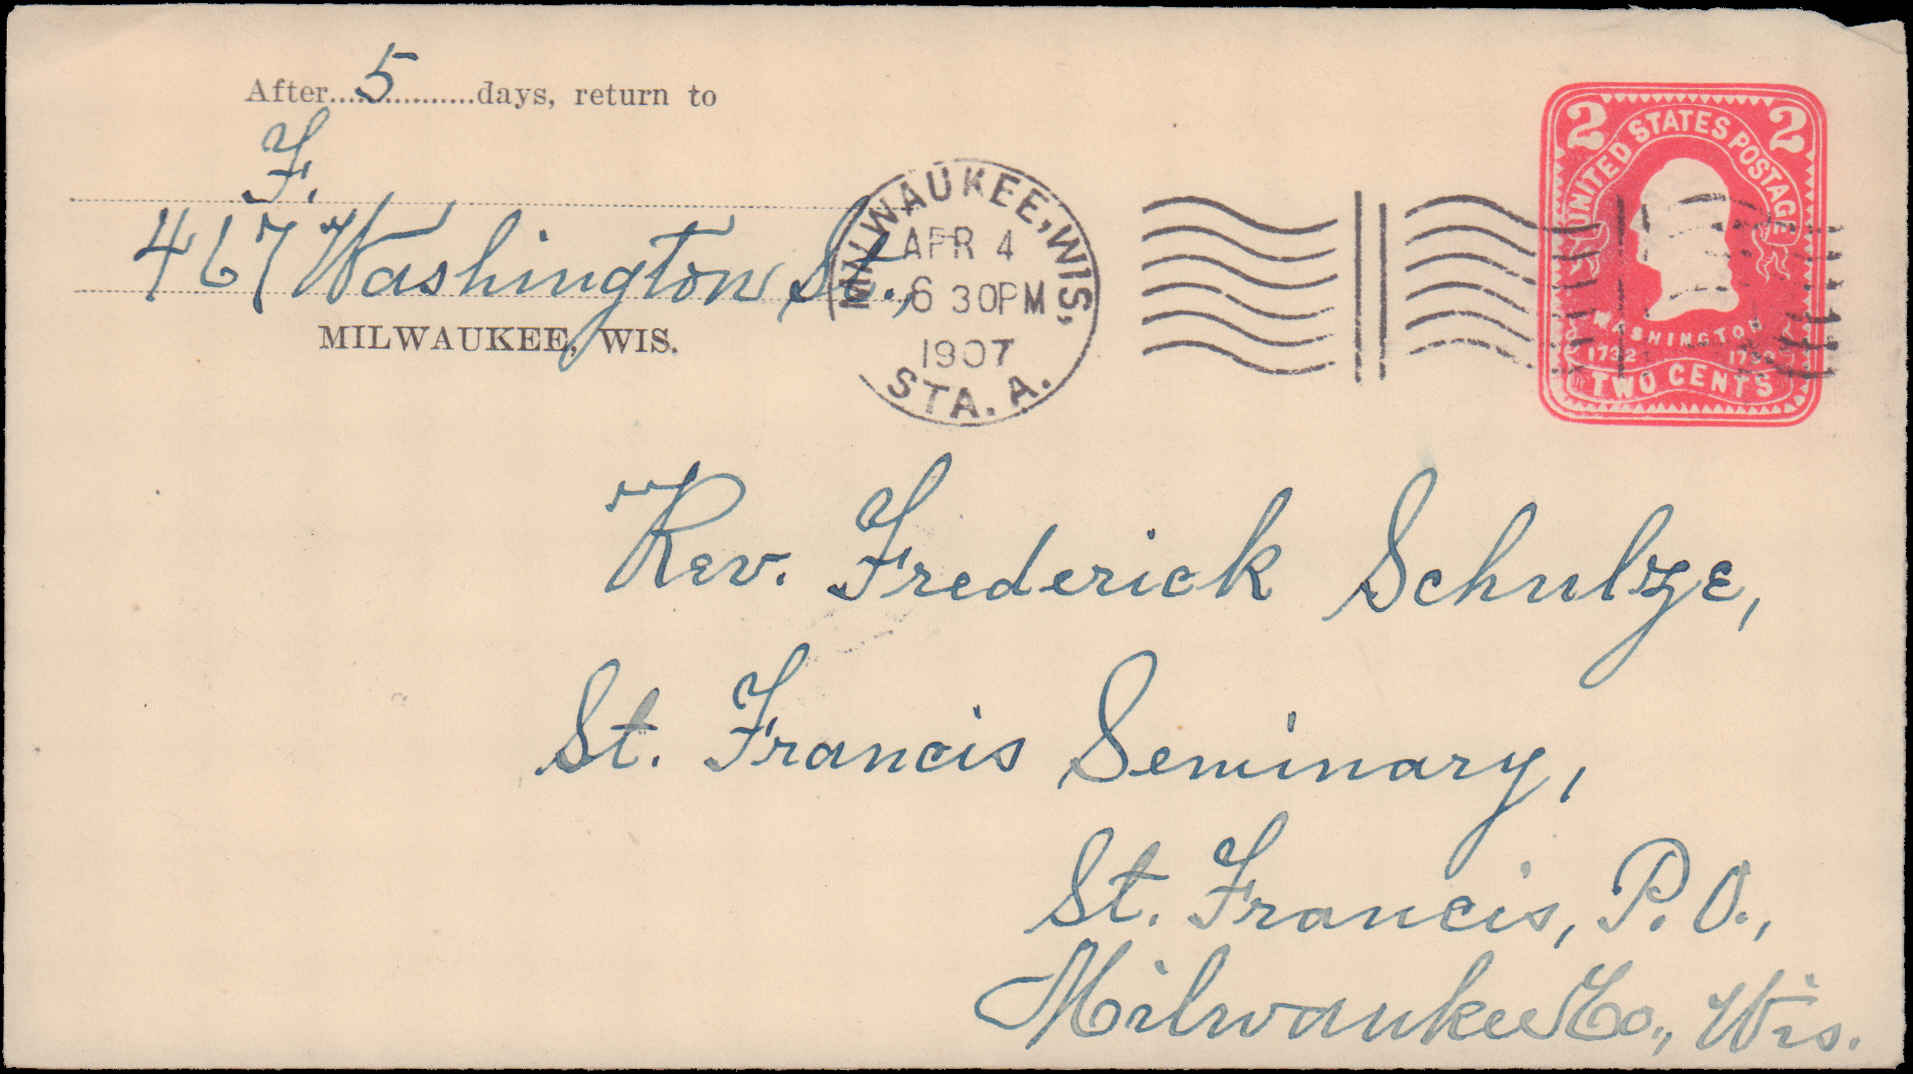 After....5....days, return to
F.
467 Washington St.,
MILWAUKEE, WIS.
MILWAUKEE, WIS,
APR 4
6 30PM
1907
STA. A.
2 2
UNITED STATES POSTAGE
WASHINGTON
1732 1799
TWO CENTS
Rev. Frederick Schulze,
St. Francis Seminary,
St. Francis, P.O.,
Milwaukee Co., Wis.